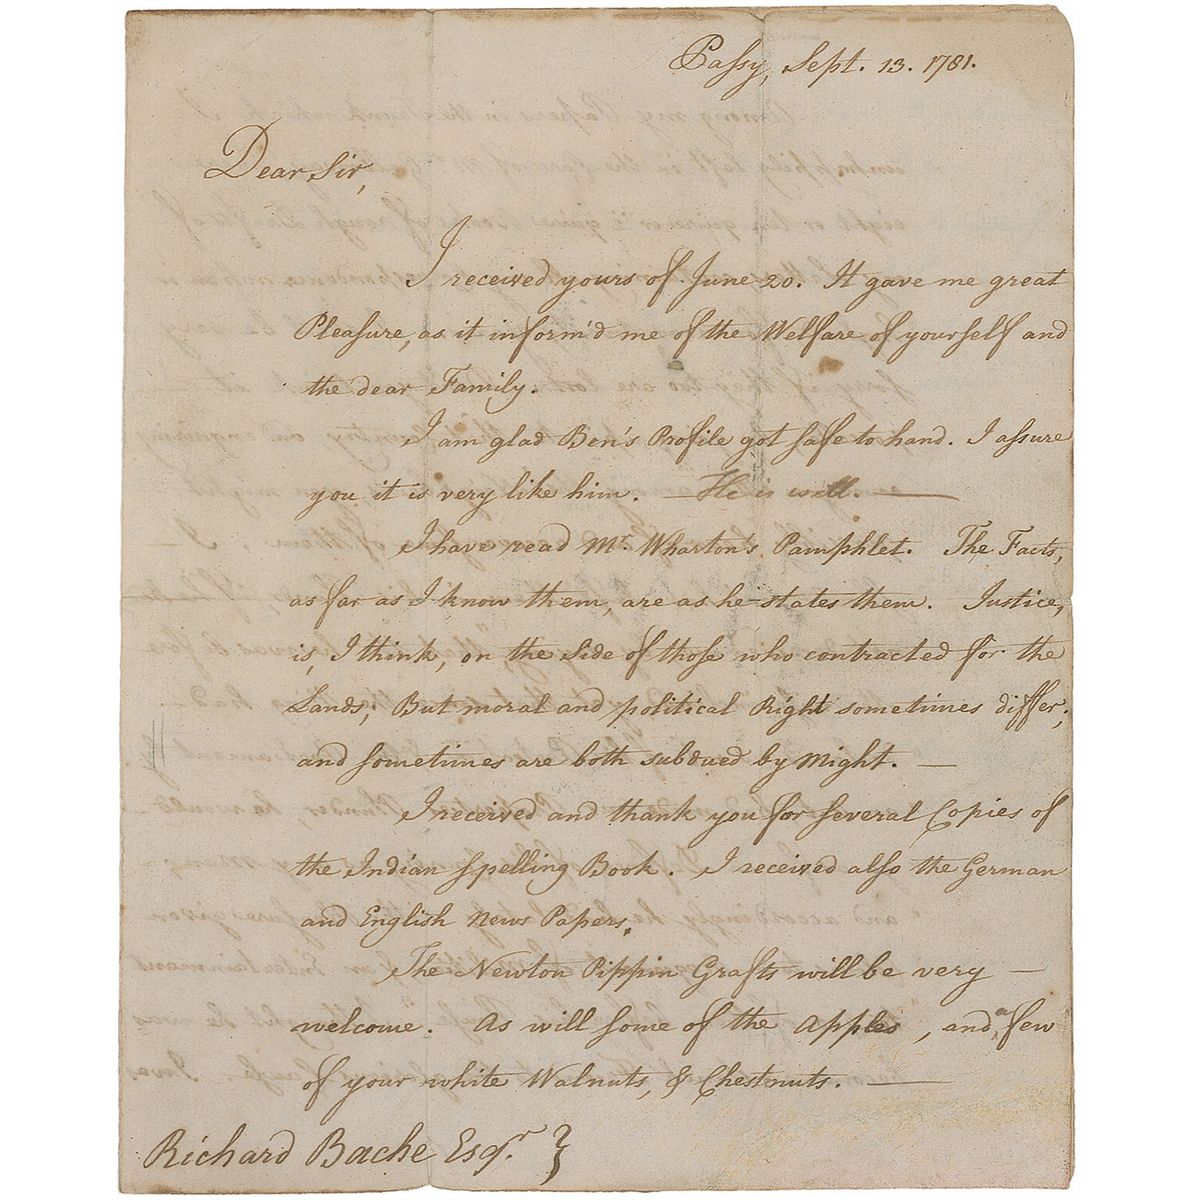 Passy, Sept. 13. 1781.
Dear Sir,
I received yours of June 20. It gave me great
Pleasure, as it inform'd me of the Welfare of yourself and
the dear Family.
I am glad Ben's Profile got safe to hand. I assure
you it is very like him. — He is well. —
I have read Mr. Wharton's Pamphlet. The Facts,
as far as I know them, are as he states them. Justice,
is, I think, on the side of those who contracted for the
Lands, But moral and political Right sometimes differ;
and sometimes are both subdued by Might. —
I received and thank you for several Copies of
the Indian Spelling Book. I received also the German
and English News Papers.
The Newton Pippin Grafts will be very —
welcome. As will some of the Apples, and a few
of your white Walnuts, & Chestnuts. —
Richard Bache Esqr. }